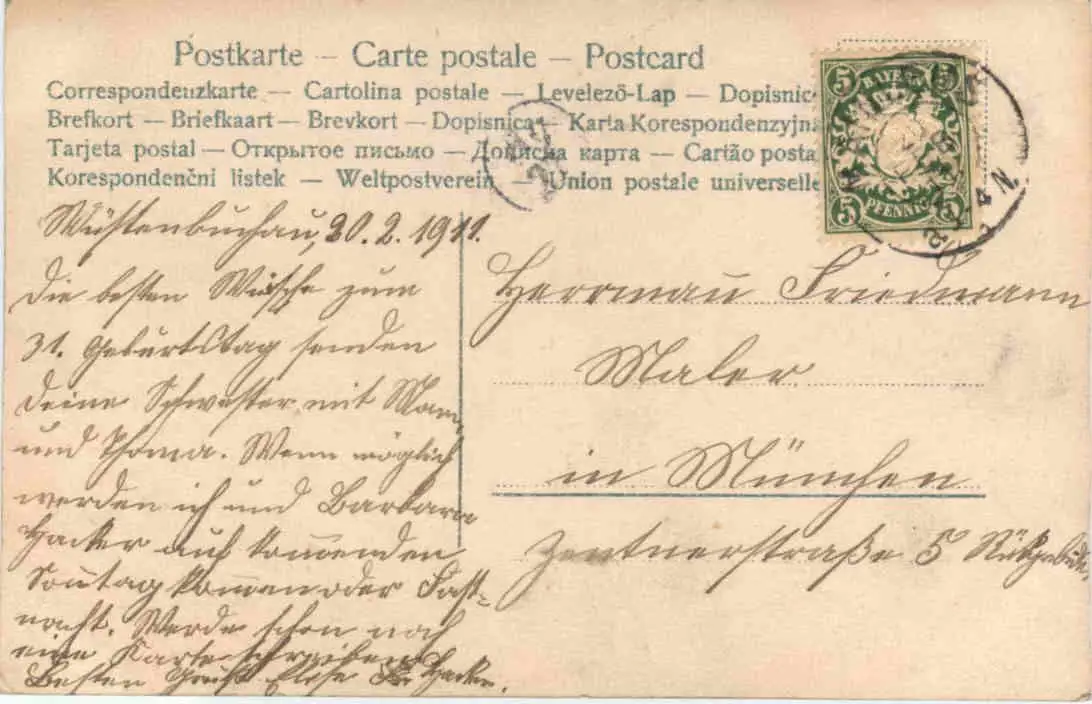 Postkarte — Carte postale — Postcard
Correspondenzkarte — Cartolina postale — Levelező-Lap — Dopisnic
Brefkort — Briefkaart — Brevkort — Dopisnica — Karta Korespondenzyjn
Tarjeta postal — Открытое письмо — Дописна карта — Cartão posta
Korespondenčni listek — Weltpostverein — Union postale universelle
5 BAYERN 5
5 PFENNIG 5
4 N
Wüstenbuchau, 20.2.1911.
Die besten Wüsche zum
31. Geburtstag senden
Deine Schwester mit Mann
und Thoma. Wenn möglich
werden ich und Barbara
Hacker auf kom̄enden
Son̄tag kom̄en oder Fast=
nacht. Werde schon noch
eine Karte schreiben
Besten Gruß Hacker.
Herrman Friedmann
Maler
in München
Zentnerstraße 5